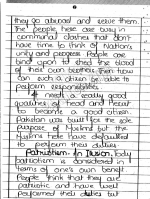 they go abroad and serve them.
The people here are busy in
communal clashes that don't
have time to think of Nation's
unity and progress. People are
bind upon to shed the blood
of their own brothers then how
can such a citizen be able to
perform responsibilities.
It need a really good
qualities of head and heart
to become a good citizen.
Pakistan was built for the sole
purpose of Muslims but the
Muslims here have defaulted
to perform their duties.
Patriotism: In Today
patriotism is considered in
terms of one's own benefit
People think that they are
patriotic and have well
performed their duties but